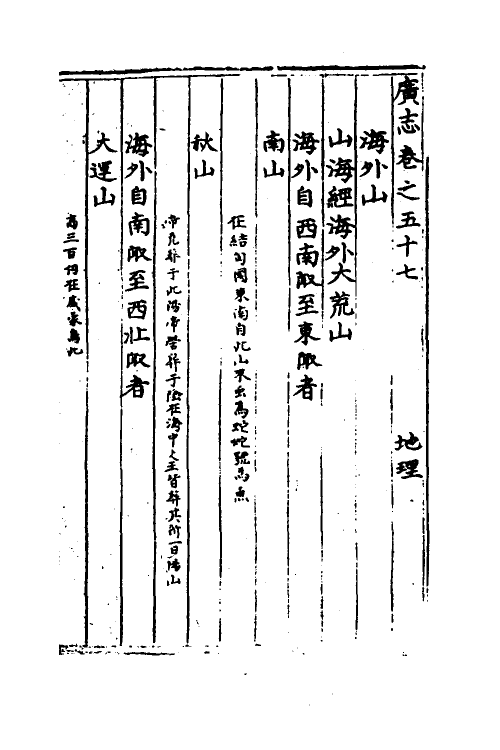 廣志卷之五十七 地理
海外山
山海經海外大荒山
海外自西南陬至東陬者
南山
在結匈國東南自此山來虫爲蛇蛇號爲魚
狄山
帝堯葬于此陽帝嚳葬于陰在海中文王皆葬其所一曰湯山
海外自南陬至西北陬者
大運山
高三百仞在滅蒙鳥北